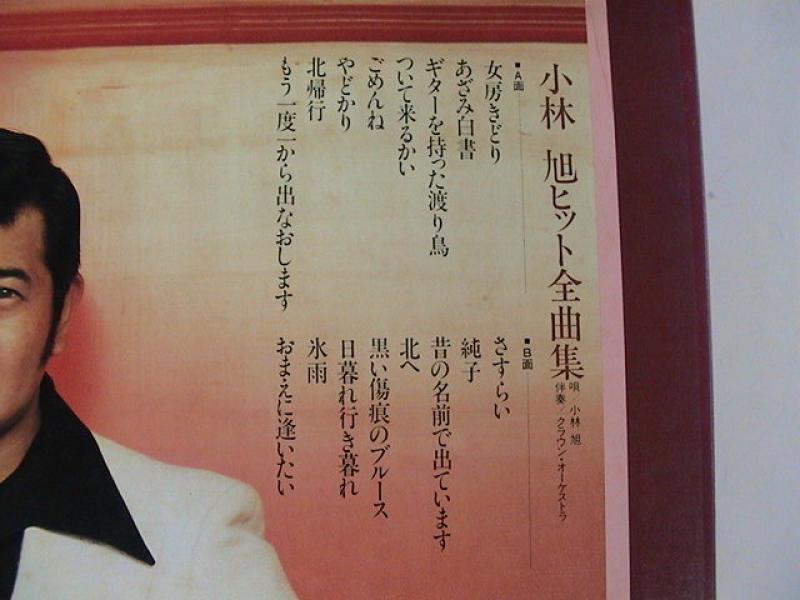 小林 旭ヒット全曲集
唄/小林 旭
伴奏/クラウン・オーケストラ
■A面
女房きどり
あざみ白書
ギターを持った渡り鳥
ついて来るかい
ごめんね
やどかり
北帰行
もう一度一から出なおします
■B面
さすらい
純子
昔の名前で出ています
北へ
黒い傷痕のブルース
日暮れ行き暮れ
氷雨
おまえに逢いたい